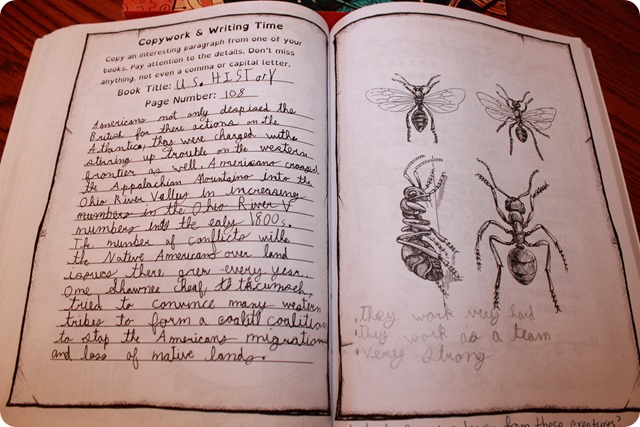 Copywork & Writing Time
Copy an interesting paragraph from one of your
books. Pay attention to the details. Don't miss
anything, not even a comma or capital letter.
Book Title: U.S. HISTory
Page Number: 108
Americans not only despised the
British for there actions on the
Atlantica, they were charged withe
stiring up trouble on the western
frontier as well. Americans crossed
the Appalachian Mountains into the
Ohio River Valley in increasing
numbers in the Ohio River V
numbers into the ealy 1800s.
The number of conflicts withe
the Native Americans over land
issues there grew every year.
One shawnee cheaf, tecumseh,
tried to convince many western
tribes to form a coalitl coalition
to stop the Americans migration
and loss of native lands.
. They work very hard
. They work as a team
. Very strong
from these creatures?